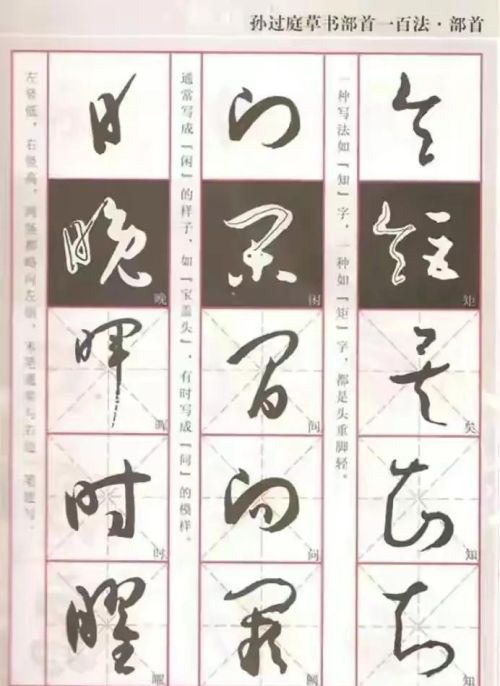 孙过庭草书部首一百法·部首
矩
矣
知
知
一种写法如「知」字，一种如「矩」字，都是头重脚轻。
门
闲
间
问
阙
通常写成「闲」的样子，如「宝盖头」，有时写成「问」的模样。
日
晚
晖
时
曜
左竖低，右竖高，两竖都略向左